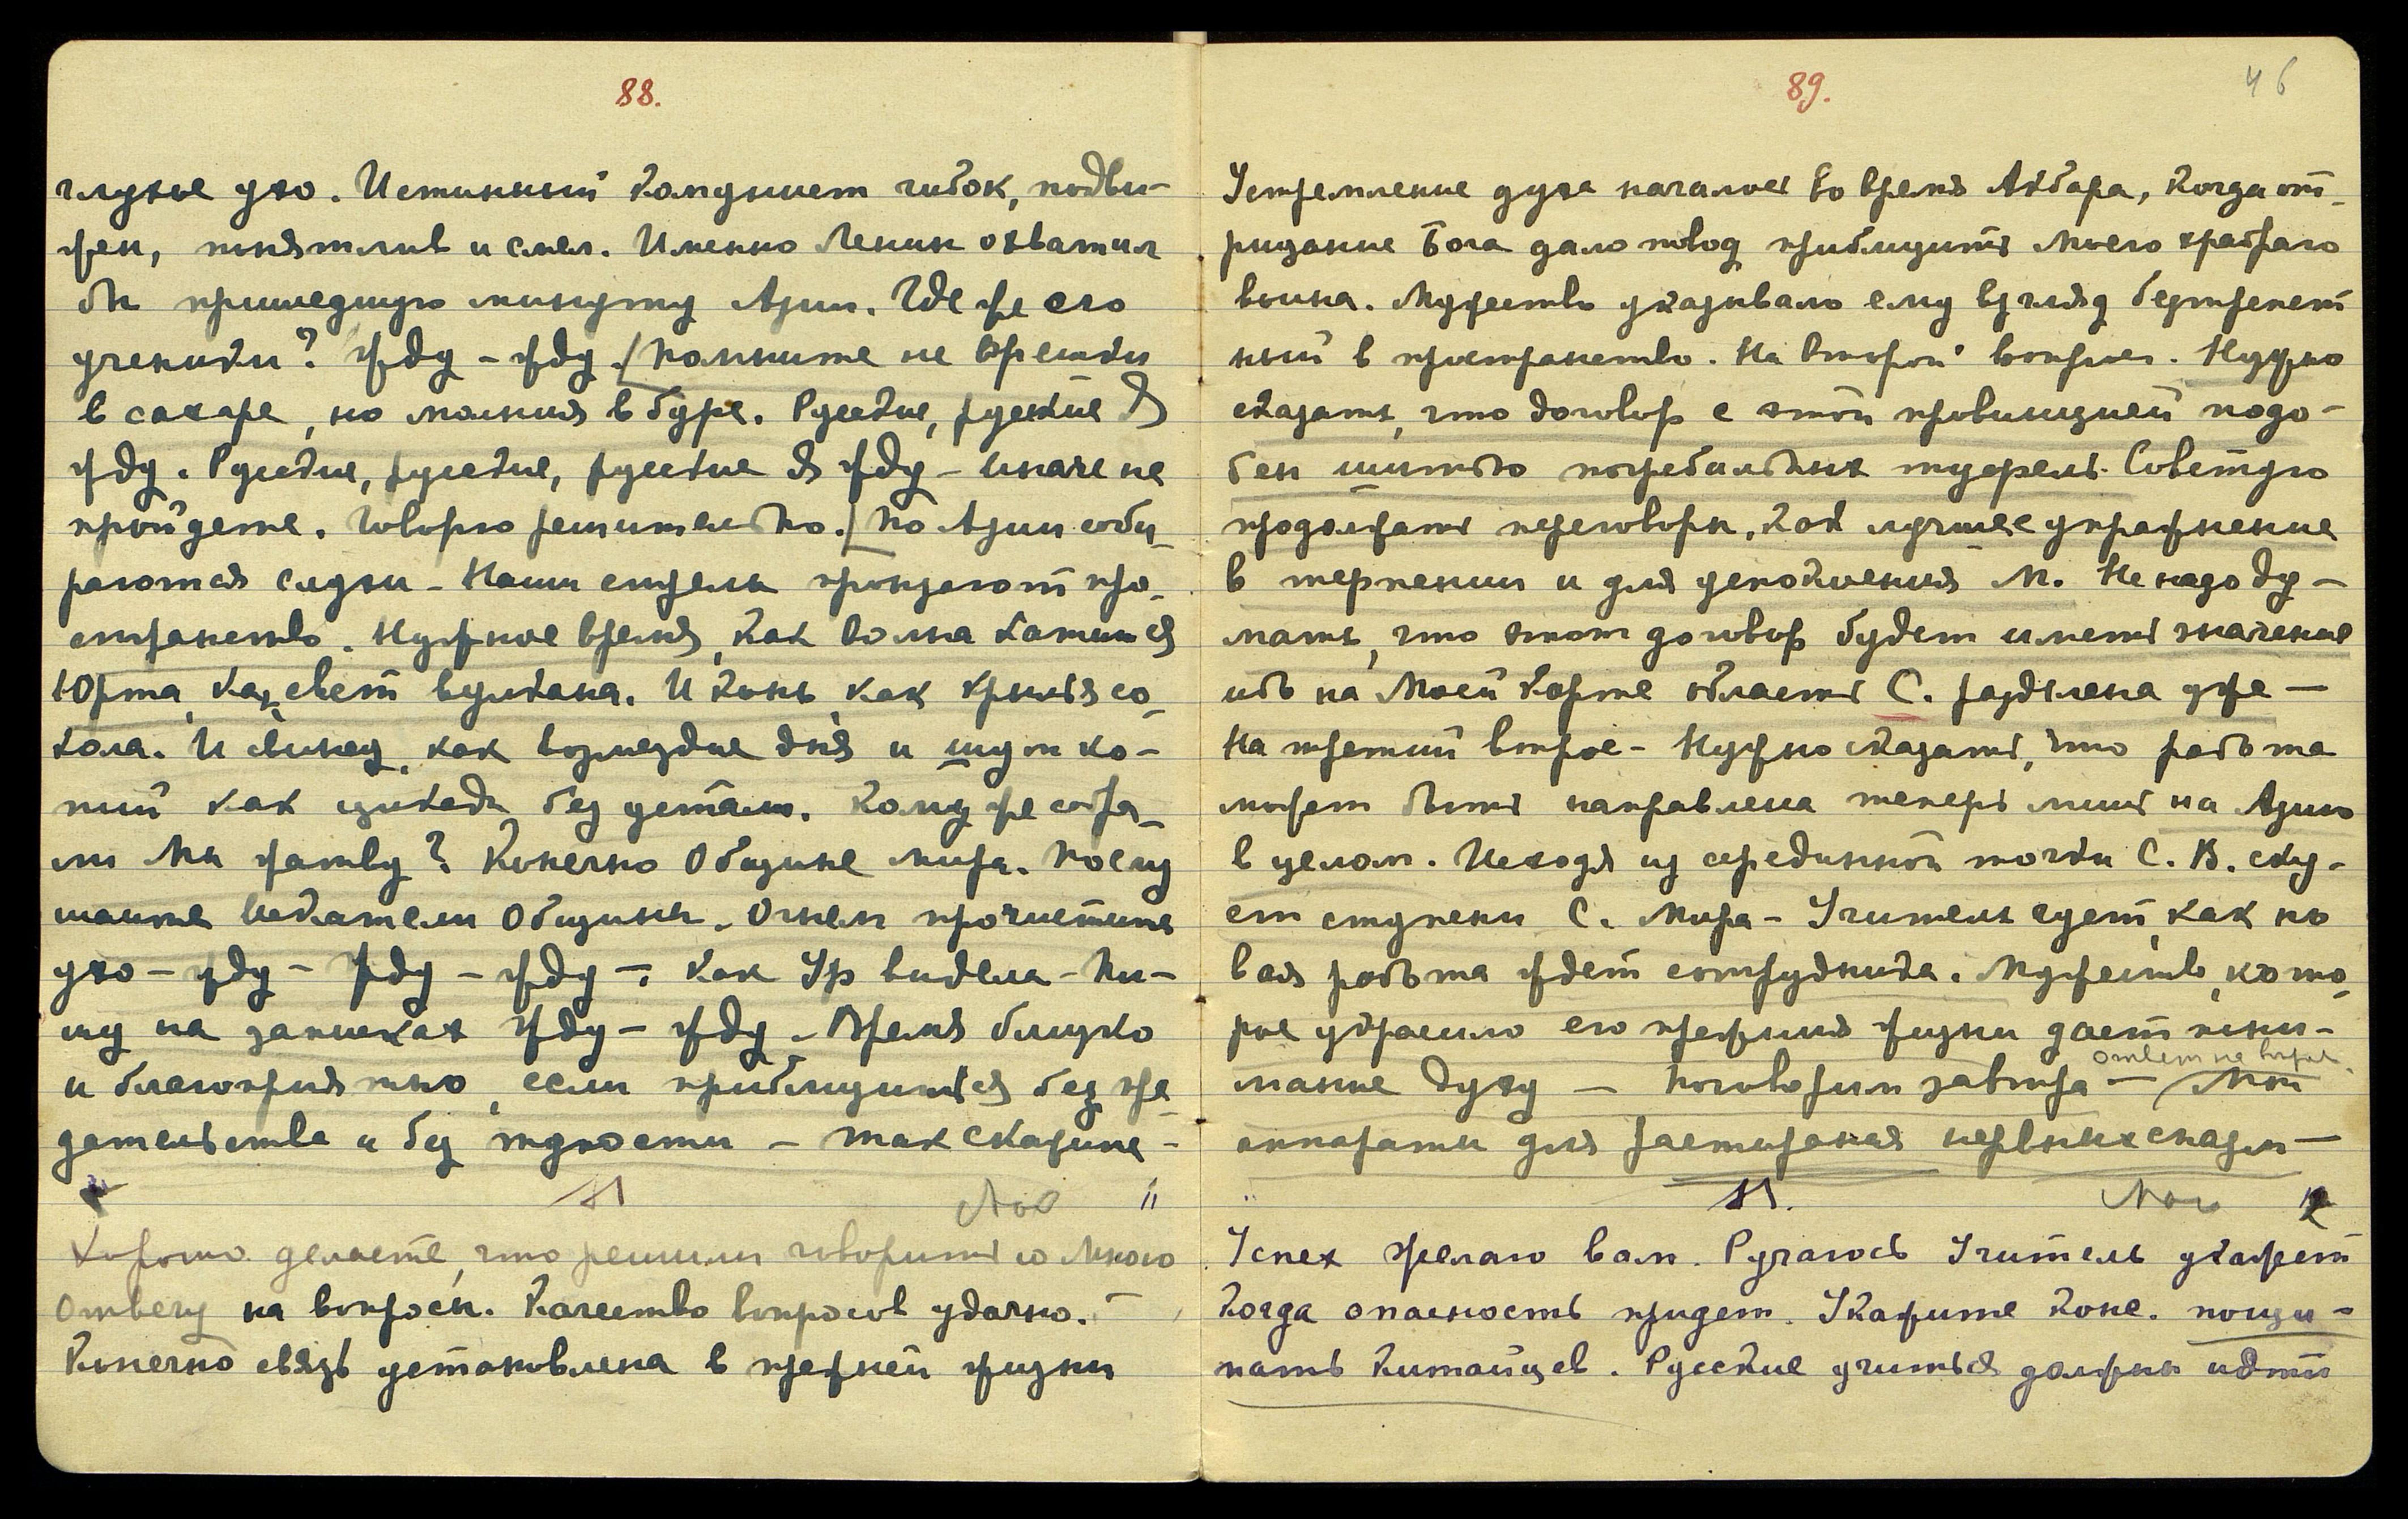 88.
глухое ухо. Истинный коммунист гибок, подви-
жен, понятлив и смел. Именно Ленин охватил
бы пришедшую минуту Азии. Где же его
ученики? Жду – жду. Помните не орешки
в сахаре, но молния в буре. Русские, русские Я
жду. Русские, русские, русские Я жду – иначе не
пройдете. Говорю решительно. По Азии соби-
раются слухи – Наши стрелы пронзают про-
странство. Нужное время, как волна катится
Юрта, как свет вулкана. И конь, как крылья со-
кола. И свинец, как возмездие дня и шум ко-
пий как цикады без устали. Кому же собра-
ли Мы жатву? Конечно Общине мира. Послу
шайте искатели Общины. Огнем прочистите
ухо – жду – жду – жду – Как Ур видела – Пи-
шу на записках жду – жду. Время близко
и благоприятно, если приблизиться без пре
дательства и без тупости – так скажите –
11
Хорошо делаете, что решили говорить со Мною
Отвечу на вопросы. Качество вопросов удачно. –
Конечно связь установлена в прежней жизни
89.
46
Устремление духа началось во время Акбара, когда от-
рицание Бога дало повод приблизить Моего храбраго
воина. Мужество указывало ему взгляд безтрепет
ный в пространство. На второй вопрос. Нужно
сказать, что договор с этой провинцией подо-
бен шитью погребальных туфель. Советую
продолжать переговоры, как лучшее упражнение
в терпении и для успокоения М. Не надо ду-
мать, что этот договор будет иметь значение
ибо на Моей карте область С. разделена уже –
На третий вопрос – Нужно сказать, что работа
может быть направлена теперь лишь на Азию
в целом. Исходя из срединной точки С. В. ску-
ст ступени С. Мира – Учитель чует, как но
вая работа ждет сотрудника. Мужество, кото-
рое украсило его прежния жизни дает пони-
ответ на вопрос
мание духу – Поговорим завтра – Мои
аппараты для растирания нервных спазм –
11.
12
Успех желаю вам. Ручаюсь Учитель укажет
когда опасность придет. Укажите Коне. пощи-
пать Китайцев. Русские учиться должны идти